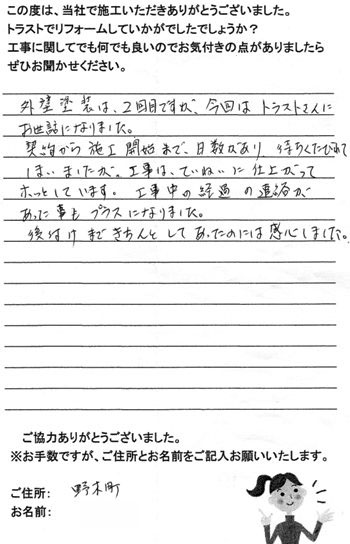 この度は、当社で施工いただきありがとうございました。
トラストでリフォームしていかがでしたでしょうか?
工事に関してでも何でも良いのでお気付きの点がありましたら
ぜひお聞かせください。
外壁塗装は、2回目ですが、今回は トラストさんに
お世話になりました。
契約から 施工 開始まで、日数があり 待ちくたびれて
しまいましたが。工事は、ていねいに 仕上がって
ホッとしています。 工事中の 経過 の 連絡が
あった事も プラスに なりました。
後付け まで きちんと して あったのには 感心しました。
ご協力ありがとうございました。
※お手数ですが、ご住所とお名前をご記入お願いいたします。
ご住所: 野木町
お名前: